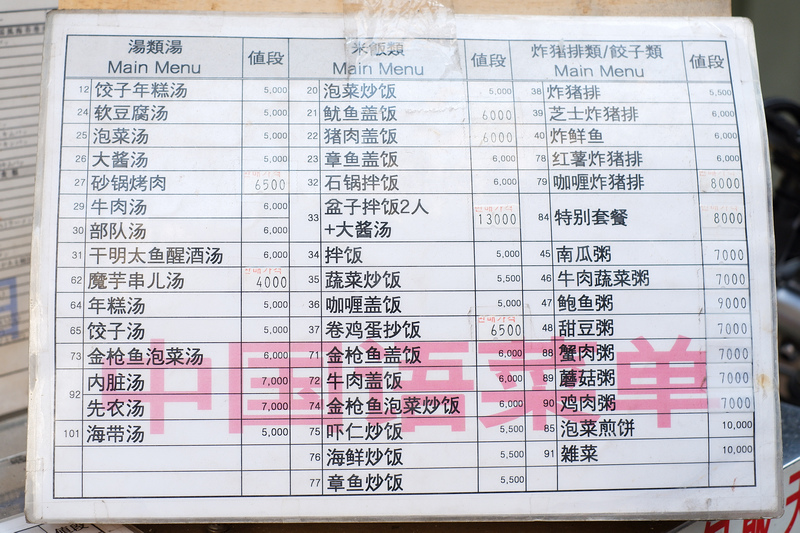 湯類湯 値段 米飯類 値段 炸猪排類/餃子類 値段
Main Menu Main Menu Main Menu
12 饺子年糕汤 5,000 20 泡菜炒饭 5,000 38 炸猪排 5,500
24 软豆腐汤 5,000 21 鱿鱼盖饭 6000 39 芝士炸猪排 6,000
25 泡菜汤 5,000 22 猪肉盖饭 6000 40 炸鲜鱼 6,000
26 大酱汤 5,000 23 章鱼盖饭 6,000 78 红薯炸猪排 6,000
27 砂锅烤肉 6500 32 石锅拌饭 6,000 79 咖喱炸猪排 8000
29 牛肉汤 6,000 33 盆子拌饭2人 13000 84 特别套餐 8000
30 部队汤 6,000 +大酱汤
31 干明太鱼醒酒汤 6,000 34 拌饭 5,000 45 南瓜粥 7000
62 魔芋串儿汤 4000 35 蔬菜炒饭 5,500 46 牛肉蔬菜粥 7000
64 年糕汤 5,000 36 咖喱盖饭 5,000 47 鲍鱼粥 9000
65 饺子汤 5,000 37 卷鸡蛋抄饭 6500 48 甜豆粥 7000
73 金枪鱼泡菜汤 6,000 71 金枪鱼盖饭 6,000 88 蟹肉粥 7000
92 内脏汤 7,000 72 牛肉盖饭 6,000 89 蘑菇粥 7000
先农汤 7,000 74 金枪鱼泡菜炒饭 6,000 90 鸡肉粥 7000
101 海带汤 5,000 75 吓仁炒饭 5,500 85 泡菜煎饼 10,000
76 海鲜炒饭 5,500 91 雑菜 10,000
77 章鱼炒饭 5,500
中国语菜单